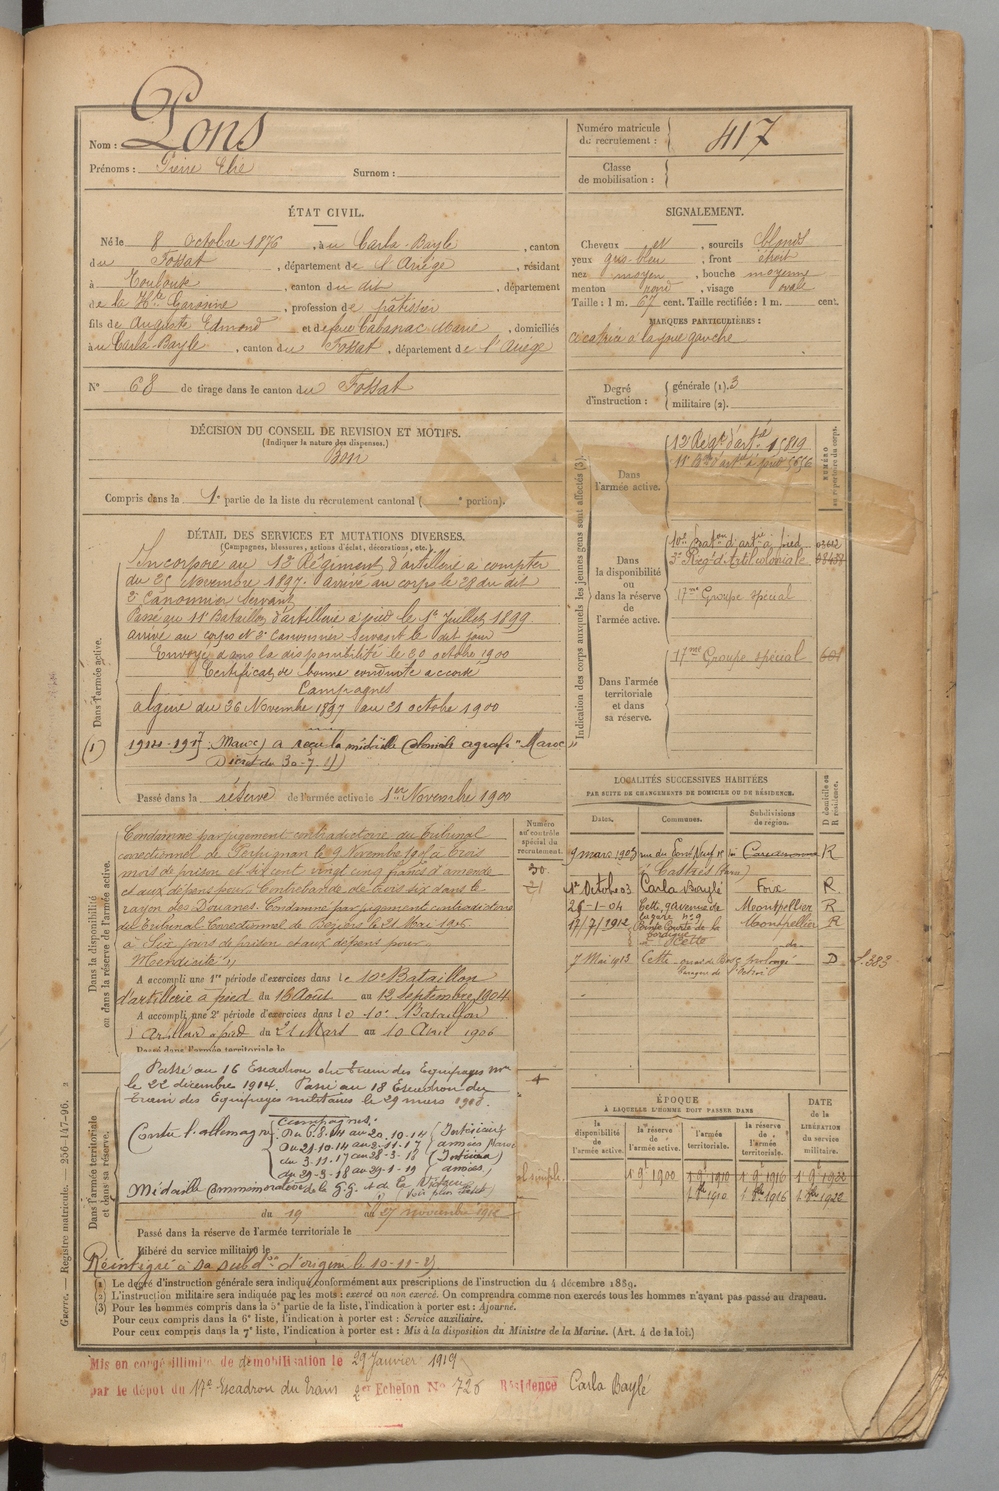 Nom : Pons
Prénoms : Pierre Elie Surnom :
Numéro matricule du recrutement : 417
Classe de mobilisation :
ÉTAT CIVIL.
Né le 8 octobre 1876, à u Carla-Bayle, canton
du Fossat, département de l'Ariège, résidant
à Toulouse, canton du dit, département
de la Hte Garonne, profession de pâtissier
fils de Auguste Edmond et de feue Cabanac Marie, domiciliés
à u Carla-Bayle, canton du Fossat, département de l'Ariège
N° 68 de tirage dans le canton du Fossat
SIGNALEMENT.
Cheveux et, sourcils blonds
yeux gris-bleu, front étroit
nez moyen, bouche moyenne
menton rond, visage ovale
Taille : 1 m. 67 cent. Taille rectifiée : 1 m. cent.
MARQUES PARTICULIÈRES :
cicatrice à la joue gauche
Degré d'instruction : générale (1). 3
militaire (2).
DÉCISION DU CONSEIL DE REVISION ET MOTIFS.
(Indiquer la nature des dispenses.)
Bon
Compris dans la 1e partie de la liste du recrutement cantonal ( e portion).
DÉTAIL DES SERVICES ET MUTATIONS DIVERSES.
(Campagnes, blessures, actions d'éclat, décorations, etc.)
Dans l'armée active.
Incorporé au 12 Régiment d'artillerie à compter
du 25 Novembre 1897. arrivé au corps le 28 du dit
2e Canonnier Servant
Passé au 11e Bataillon d'artillerie à pied le 1er Juillet 1899.
arrivé au corps et 2e canonnier servant le dit jour
Envoyé dans la disponibilité le 30 octobre 1900
Certificat de bonne conduite accordé
Campagnes
algérie du 26 Novembre 1897 au 21 octobre 1900
(1) 1914-1917 (Maroc) a reçu la médaille Coloniale agrafe "Maroc"
Décret du 30-7-
Passé dans la réserve de l'armée active le 1er Novembre 1900
Indication des corps auxquels les jeunes gens sont affectés (3).
NUMÉRO au répertoire du corps.
Dans l'armée active.
12 Régt d'artie 15819
11e Bon d'artie à pied 3656
Dans la disponibilité ou dans la réserve de l'armée active.
10e Bataon d'artie à pied
3e Rég. d'Artil. coloniale
17me Groupe spécial
Dans l'armée territoriale et dans sa réserve.
17me Groupe spécial 601
LOCALITÉS SUCCESSIVES HABITÉES
PAR SUITE DE CHANGEMENTS DE DOMICILE OU DE RÉSIDENCE.
Dates. Communes. Subdivisions de région. D domicile ou R résidence.
9 mars 1903 rue du Pont Neuf Carcassonne R
à Castres (Tarn)
1er Octobre 03 Carla Bayle Foix R
26-1-04 Cette, 9 avenue de Montpellier R
17/7/1912 Pointe Courte de la Montpellier R
à Cette -do-
7 Mai 1913 Cette quai du Bosc prolongé D
Numéro au contrôle spécial du recrutement.
30
Dans la disponibilité ou dans la réserve de l'armée active.
Condamné par jugement contradictoire du tribunal
correctionnel de Perpignan le 9 Novembre 1905 à trois
mois de prison et six cent vingt cinq francs d'amende
et aux dépens pour Contrebande de trois six dans le
rayon des Douanes. Condamné par jugement contradictoire
du tribunal correctionnel de Béziers le 21 Mai 1906
à Six jours de prison et aux dépens pour
Mendicité
A accompli une 1re période d'exercices dans le 10e Bataillon
d'artillerie à pied du 16 Août au 12 septembre 1904.
A accompli une 2e période d'exercices dans le 10e Bataillon
d'Artillerie à pied du 21 Mars au 10 Avril 1906
Passé dans l'armée territoriale le
Dans l'armée territoriale et dans sa réserve.
Passé au 16 Escadron du train des Equipages mre
le 22 décembre 1914. Passé au 18 Escadron du
train des Equipages militaires le 29 mars 1918.
Campagnes :
Contre l'allemagne
Du 6.8.14 au 20.10.14 (Intérieur)
Du 21.10.14 au 2-11-17 armées Maroc
du 3-11-17 au 28-3-18 (Intérieur)
du 29-3-18 au 29-1-19 (armées)
Médaille Commémorative de la G.G. et de la Victoire
du 19 au 27 novembre 1912
Passé dans la réserve de l'armée territoriale le
Libéré du service militaire le
Réintégré à sa subdon d'origine le 10-11-
ÉPOQUE
À LAQUELLE L'HOMME DOIT PASSER DANS
la disponibilité de l'armée active. la réserve de l'armée active. l'armée territoriale. la réserve de l'armée territoriale.
DATE de la LIBÉRATION du service militaire.
1 9bre 1900 1 9bre 1910 1 9bre 1916 1 9bre 1922
1 8bre 1910 1 8bre 1916 1 8bre 1922
(1) Le degré d'instruction générale sera indiqué conformément aux prescriptions de l'instruction du 4 décembre 1889.
(2) L'instruction militaire sera indiquée par les mots : exercé ou non exercé. On comprendra comme non exercés tous les hommes n'ayant pas passé au drapeau.
(3) Pour les hommes compris dans la 5e partie de la liste, l'indication à porter est : Ajourné.
Pour ceux compris dans la 6e liste, l'indication à porter est : Service auxiliaire.
Pour ceux compris dans la 7e liste, l'indication à porter est : Mis à la disposition du Ministre de la Marine. (Art. 4 de la loi.)
Guerre. — Registre matricule. — 256-147-96.
Mis en congé illimité de démobilisation le 29 Janvier 1919
par le dépôt du 17e Escadron du Train 2e Echelon No 726 Résidence Carla Baylé